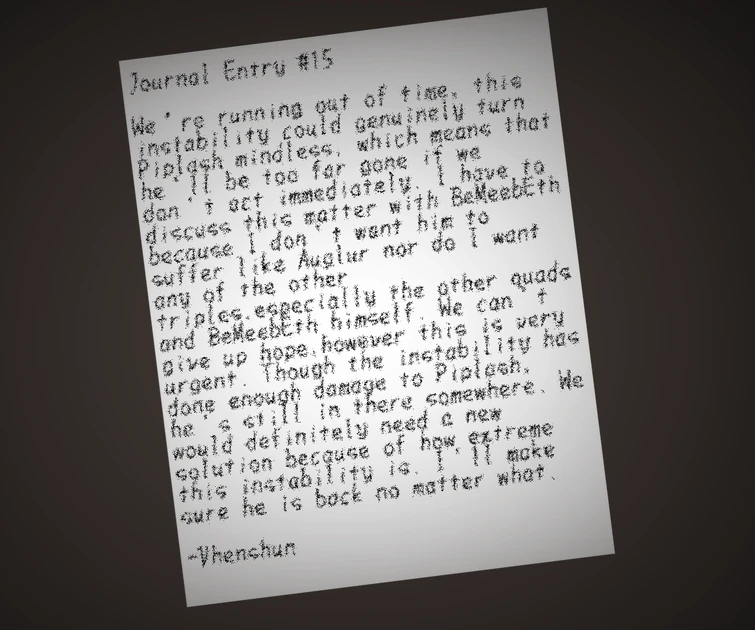 Journal Entry #15
We're running out of time, this
instability could genuinely turn
Piplash mindless, which means that
he'll be too far gone if we
don't act immediately. I have to
discuss this matter with BeMeebEth
because I don't want him to
suffer like Auglur nor do I want
any of the other
triples,especially the other quads
and BeMeebEth himself. We can't
give up hope,however this is very
urgent. Though the instability has
done enough damage to Piplash,
he's still in there somewhere. We
would definitely need a new
solution because of how extreme
this instability is. I'll make
sure he is back no matter what.
-Vhenshun